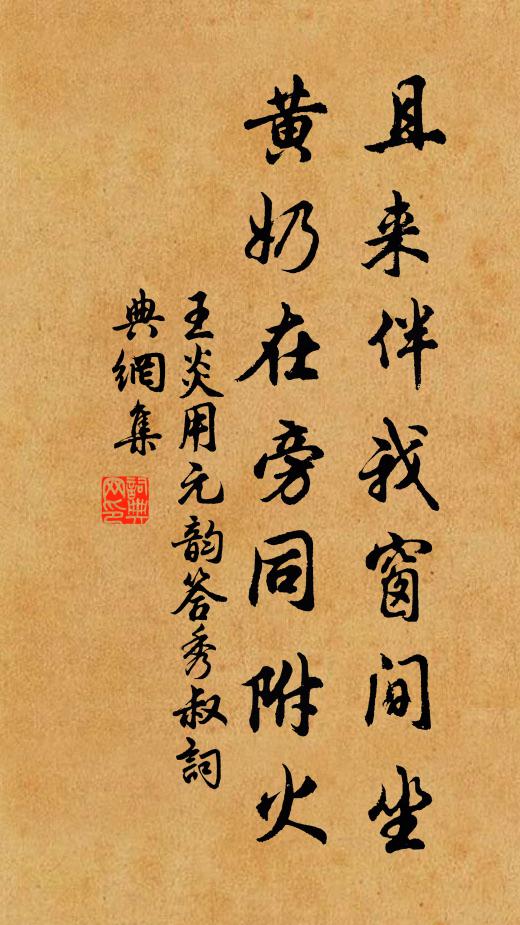 且来伴我窗间坐
黄奶在旁同附火
王炎用元韵答秀叔詞
典網集
詞典网印